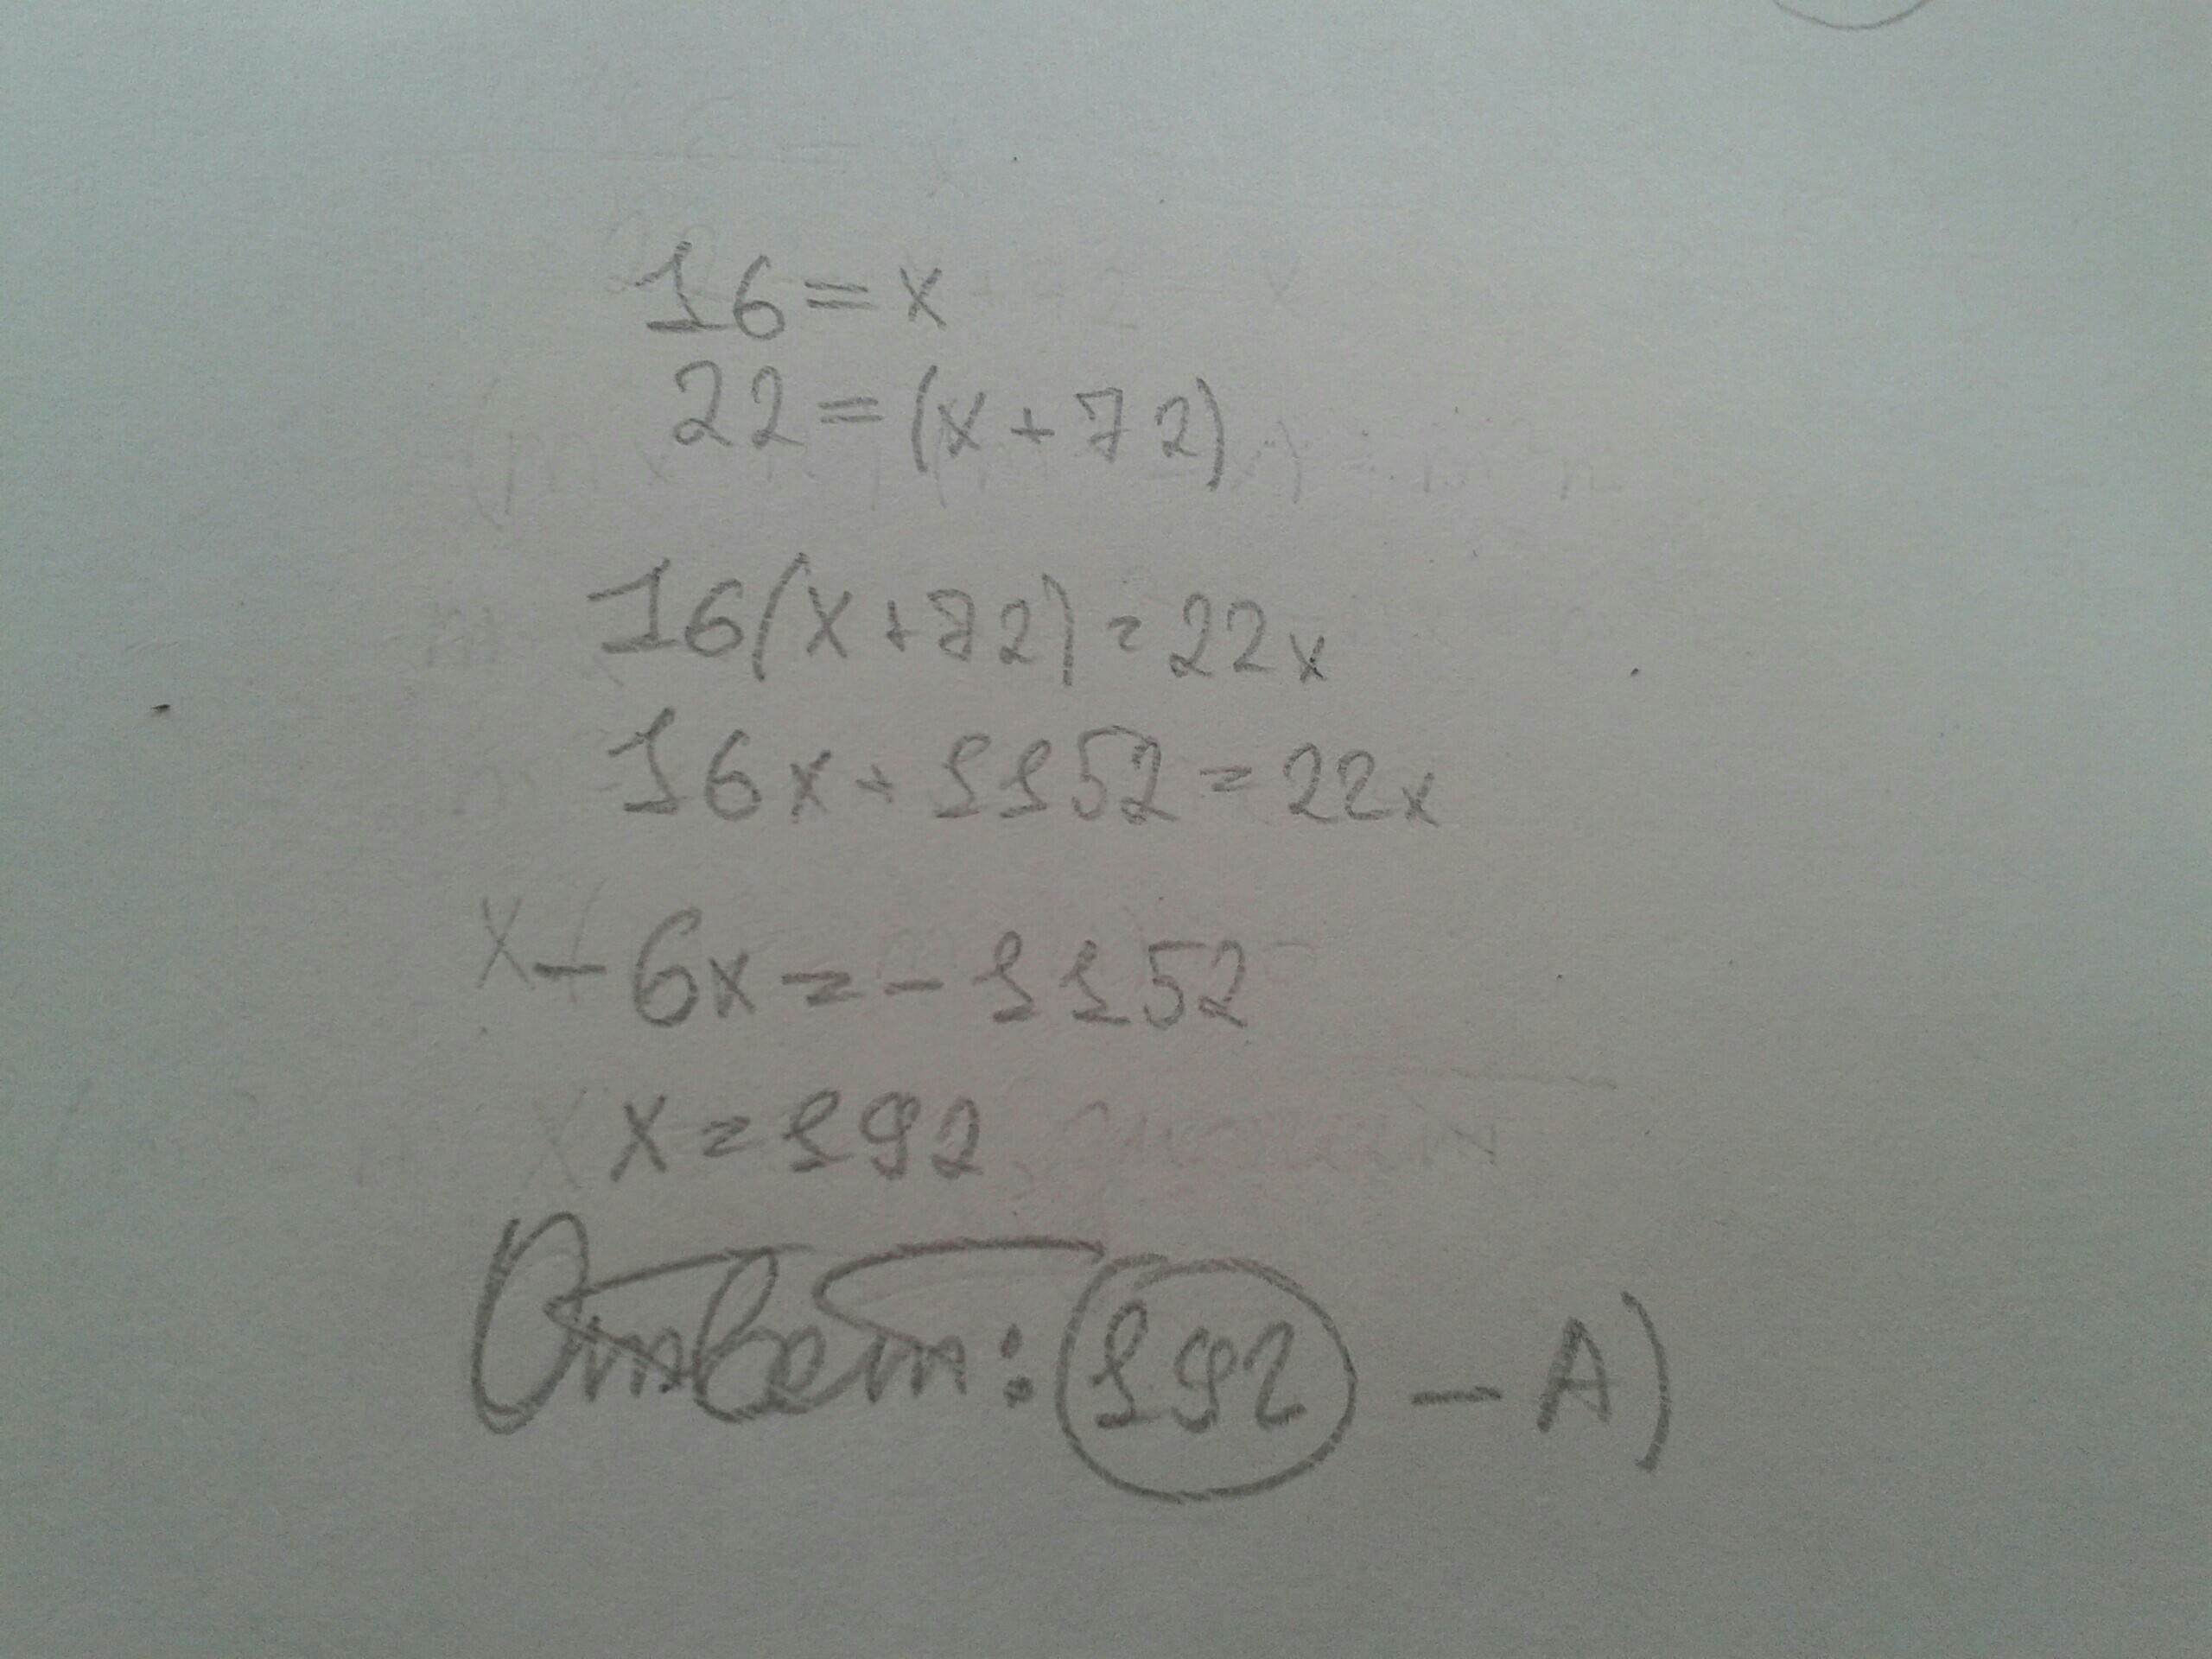 16=x
22=(x+72)
16(x+72)=22x
16x+1152=22x
-6x=-1152
x=192
Ответ: 192 - А)